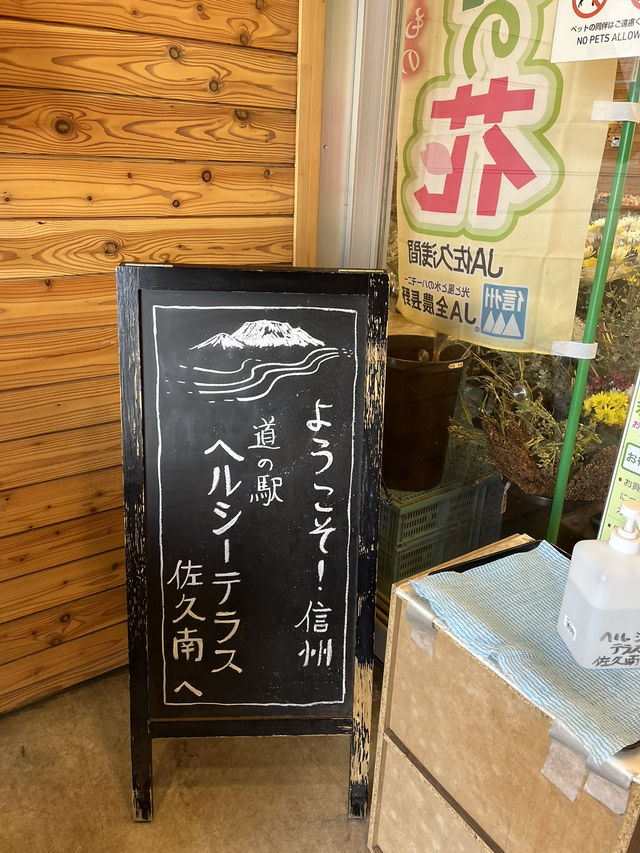 ようこそ！信州
道の駅
ヘルシーテラス
佐久南へ
の花
JA佐久浅間
光と風と水のハーモニー
JA全農長野
信州
ペットの同伴はご遠慮く
NO PETS ALLOW
ヘルシ
テラス
佐久南